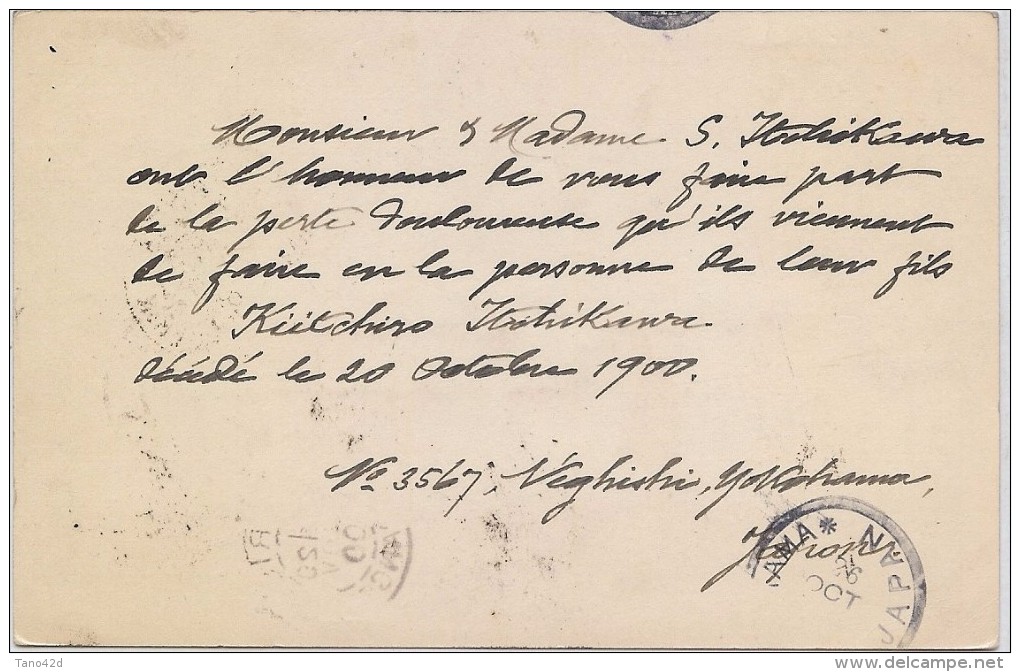 Monsieur & Madame S. Itchikawa
ont l'honneur de vous faire part
de la perte douloureuse qu'ils viennent
de faire en la personne de leur fils
Kiitchiro Itchikawa
décédé le 20 Octobre 1900.
No 3567, Néghishi, Yokohama,
Japon.
AMA * JAPAN
26
OCT
Tano42d
delcampe.net